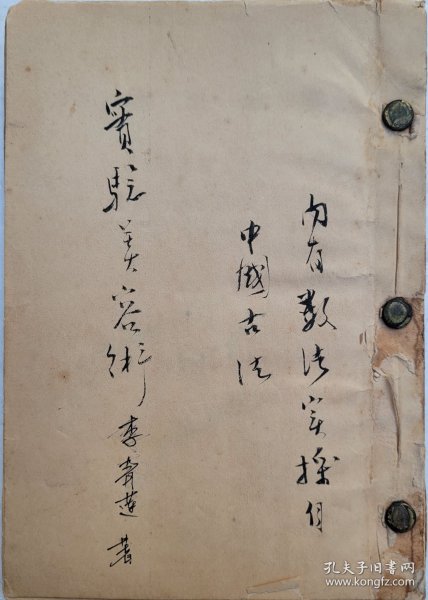 內有数法实操自
中國古法
實驗美容術 李青蓮 著
孔夫子旧书网
www.kongfz.com